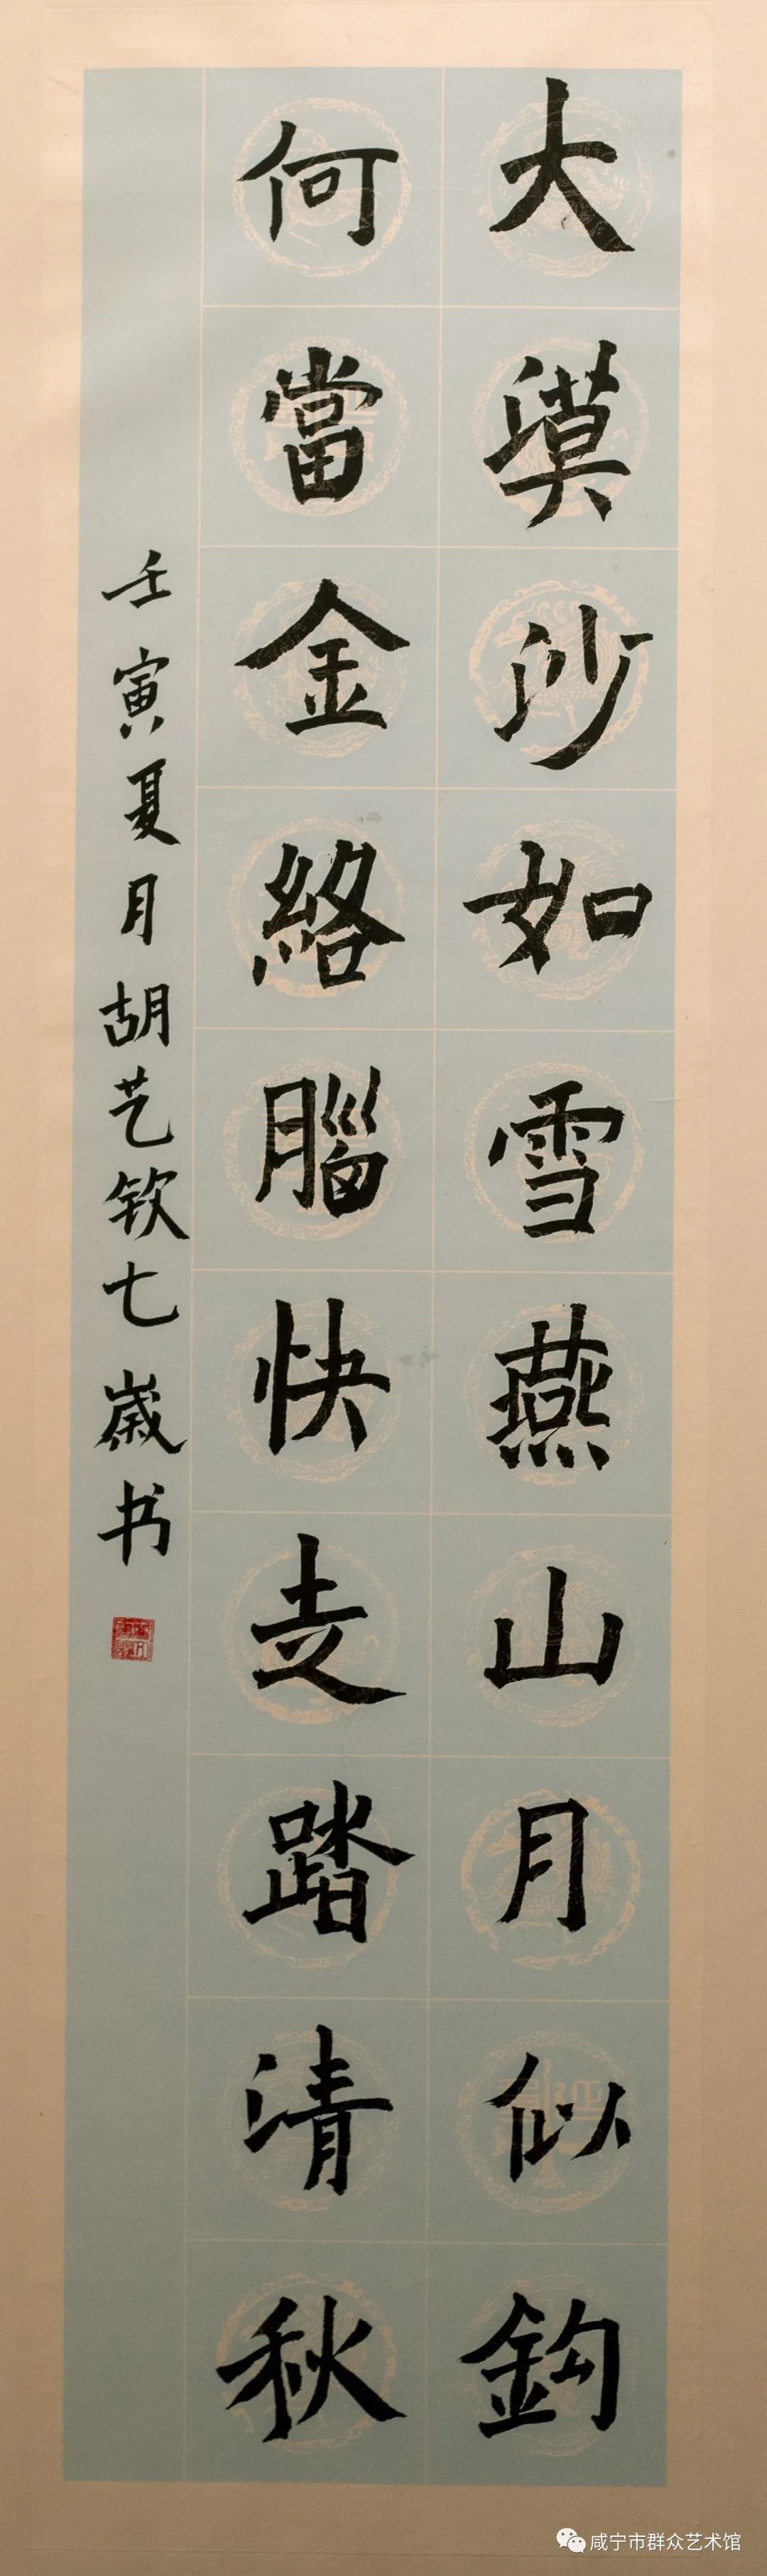 大漠沙如雪燕山月似鈎
何當金絡腦快走踏清秋
壬寅夏月胡艺钦七歲书
咸宁市群众艺术馆